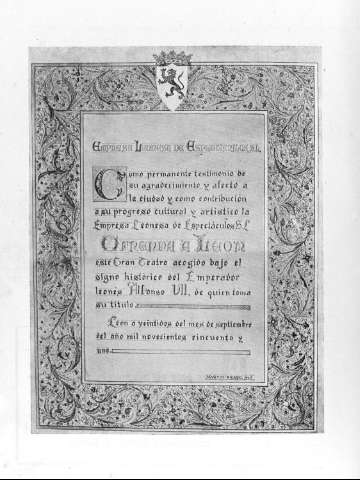 Empresa Leonesa de Espectáculos, S.L.
Como permanente testimonio de
su agradecimiento y afecto a
la ciudad y como contribución
a su progreso cultural y artístico la
Empresa Leonesa de Espectáculos S.L.
OFRENDA A LEON
este Gran Teatro acogido bajo el
signo histórico del Emperador
leonés Alfonso VII, de quien toma
su título.
León a veintidos del mes de septiembre
del año mil novecientos cincuenta y
uno.